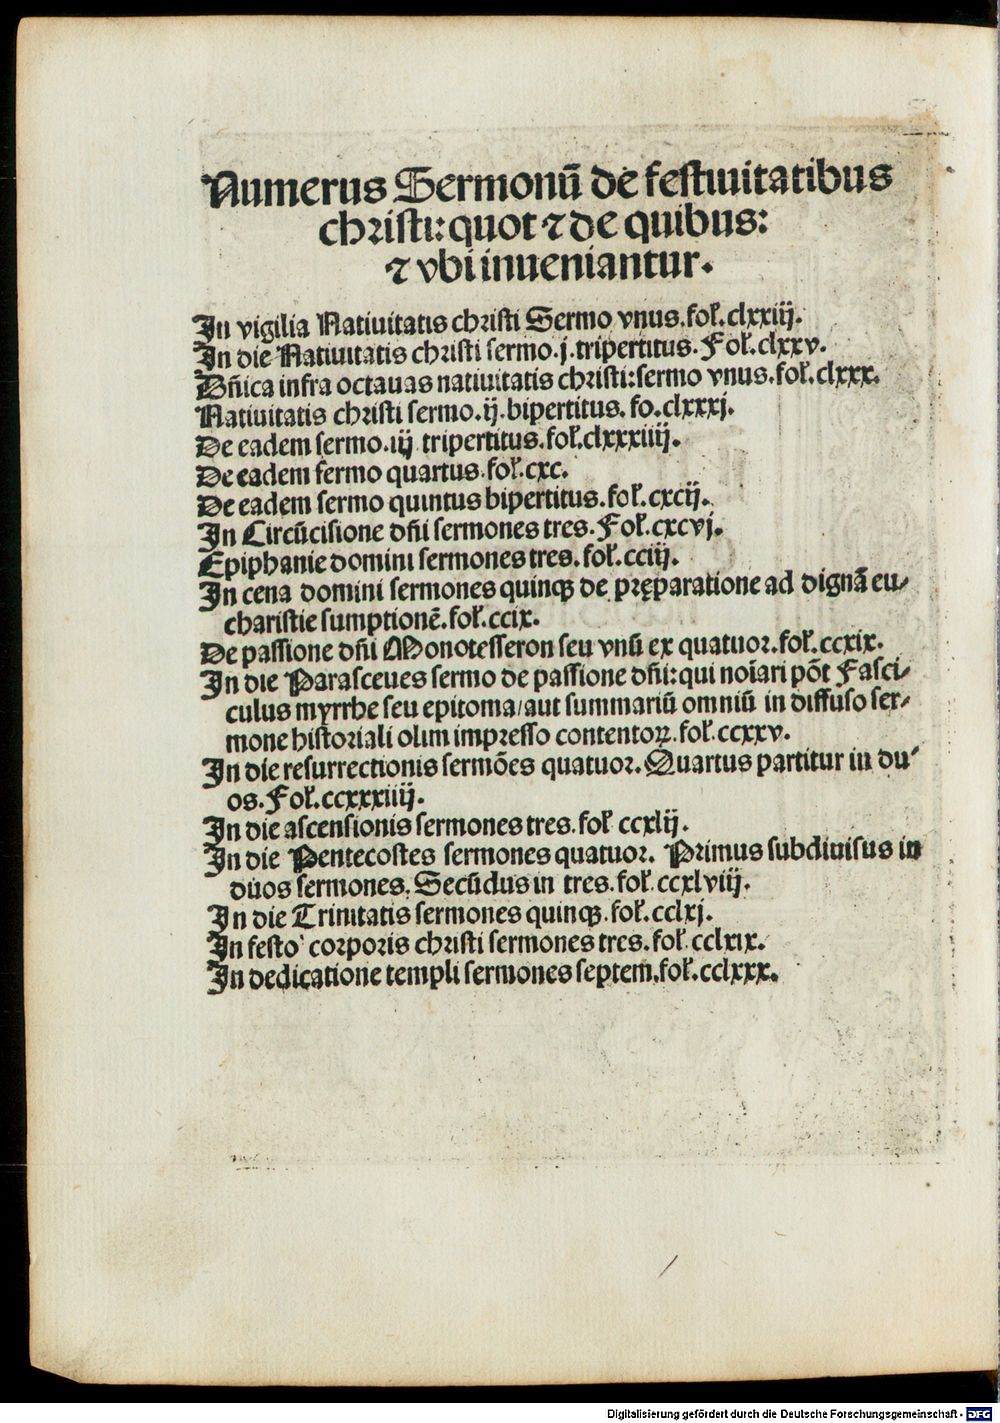 Numerus Sermonū de festiuitatibus
christi: quot ⁊ de quibus:
⁊ vbi inueniantur.
In vigilia Natiuitatis christi Sermo vnus. fol̄. clxxiij.
In die Natiuitatis christi sermo. j. tripertitus. Fol̄. clxxv.
Dñica infra octauas natiuitatis christi: sermo vnus. fol̄. clxxx.
Natiuitatis christi sermo. ij. bipertitus. fo. clxxxj.
De eadem sermo. iij tripertitus. fol̄. clxxxiiij.
De eadem sermo quartus. fol̄. cxc.
De eadem sermo quintus bipertitus. fol̄. cxcij.
In Circūcisione dñi sermones tres. Fol̄. cxcvj.
Epiphanie domini sermones tres. fol̄. cciij.
In cena domini sermones quinqꝫ de pręparatione ad dignā eu⸗
charistie sumptionē. fol̄. ccix.
De passione dñi Monotesseron seu vnū ex quatuor. fol̄. ccxix.
In die Parasceues sermo de passione dñi: qui noīari pōt Fasci⸗
culus myrrhe seu epitoma/ aut summariū omniū in diffuso ser⸗
mone historiali olim impresso contentoꝝ. fol̄. ccxxv.
In die resurrectionis sermōes quatuor. Quartus partitur in du⸗
os. Fol̄. ccxxxiiij.
In die ascensionis sermones tres. fol̄ ccxlij.
In die Pentecostes sermones quatuor. Primus subdiuisus in
duos sermones. Secūdus in tres. fol̄. ccxlviij.
In die Trinitatis sermones quinqꝫ. fol̄. cclxj.
In festo corporis christi sermones tres. fol̄ cclxix.
In dedicatione templi sermones septem. fol̄. cclxxx.
Digitalisierung gefördert durch die Deutsche Forschungsgemeinschaft - DFG